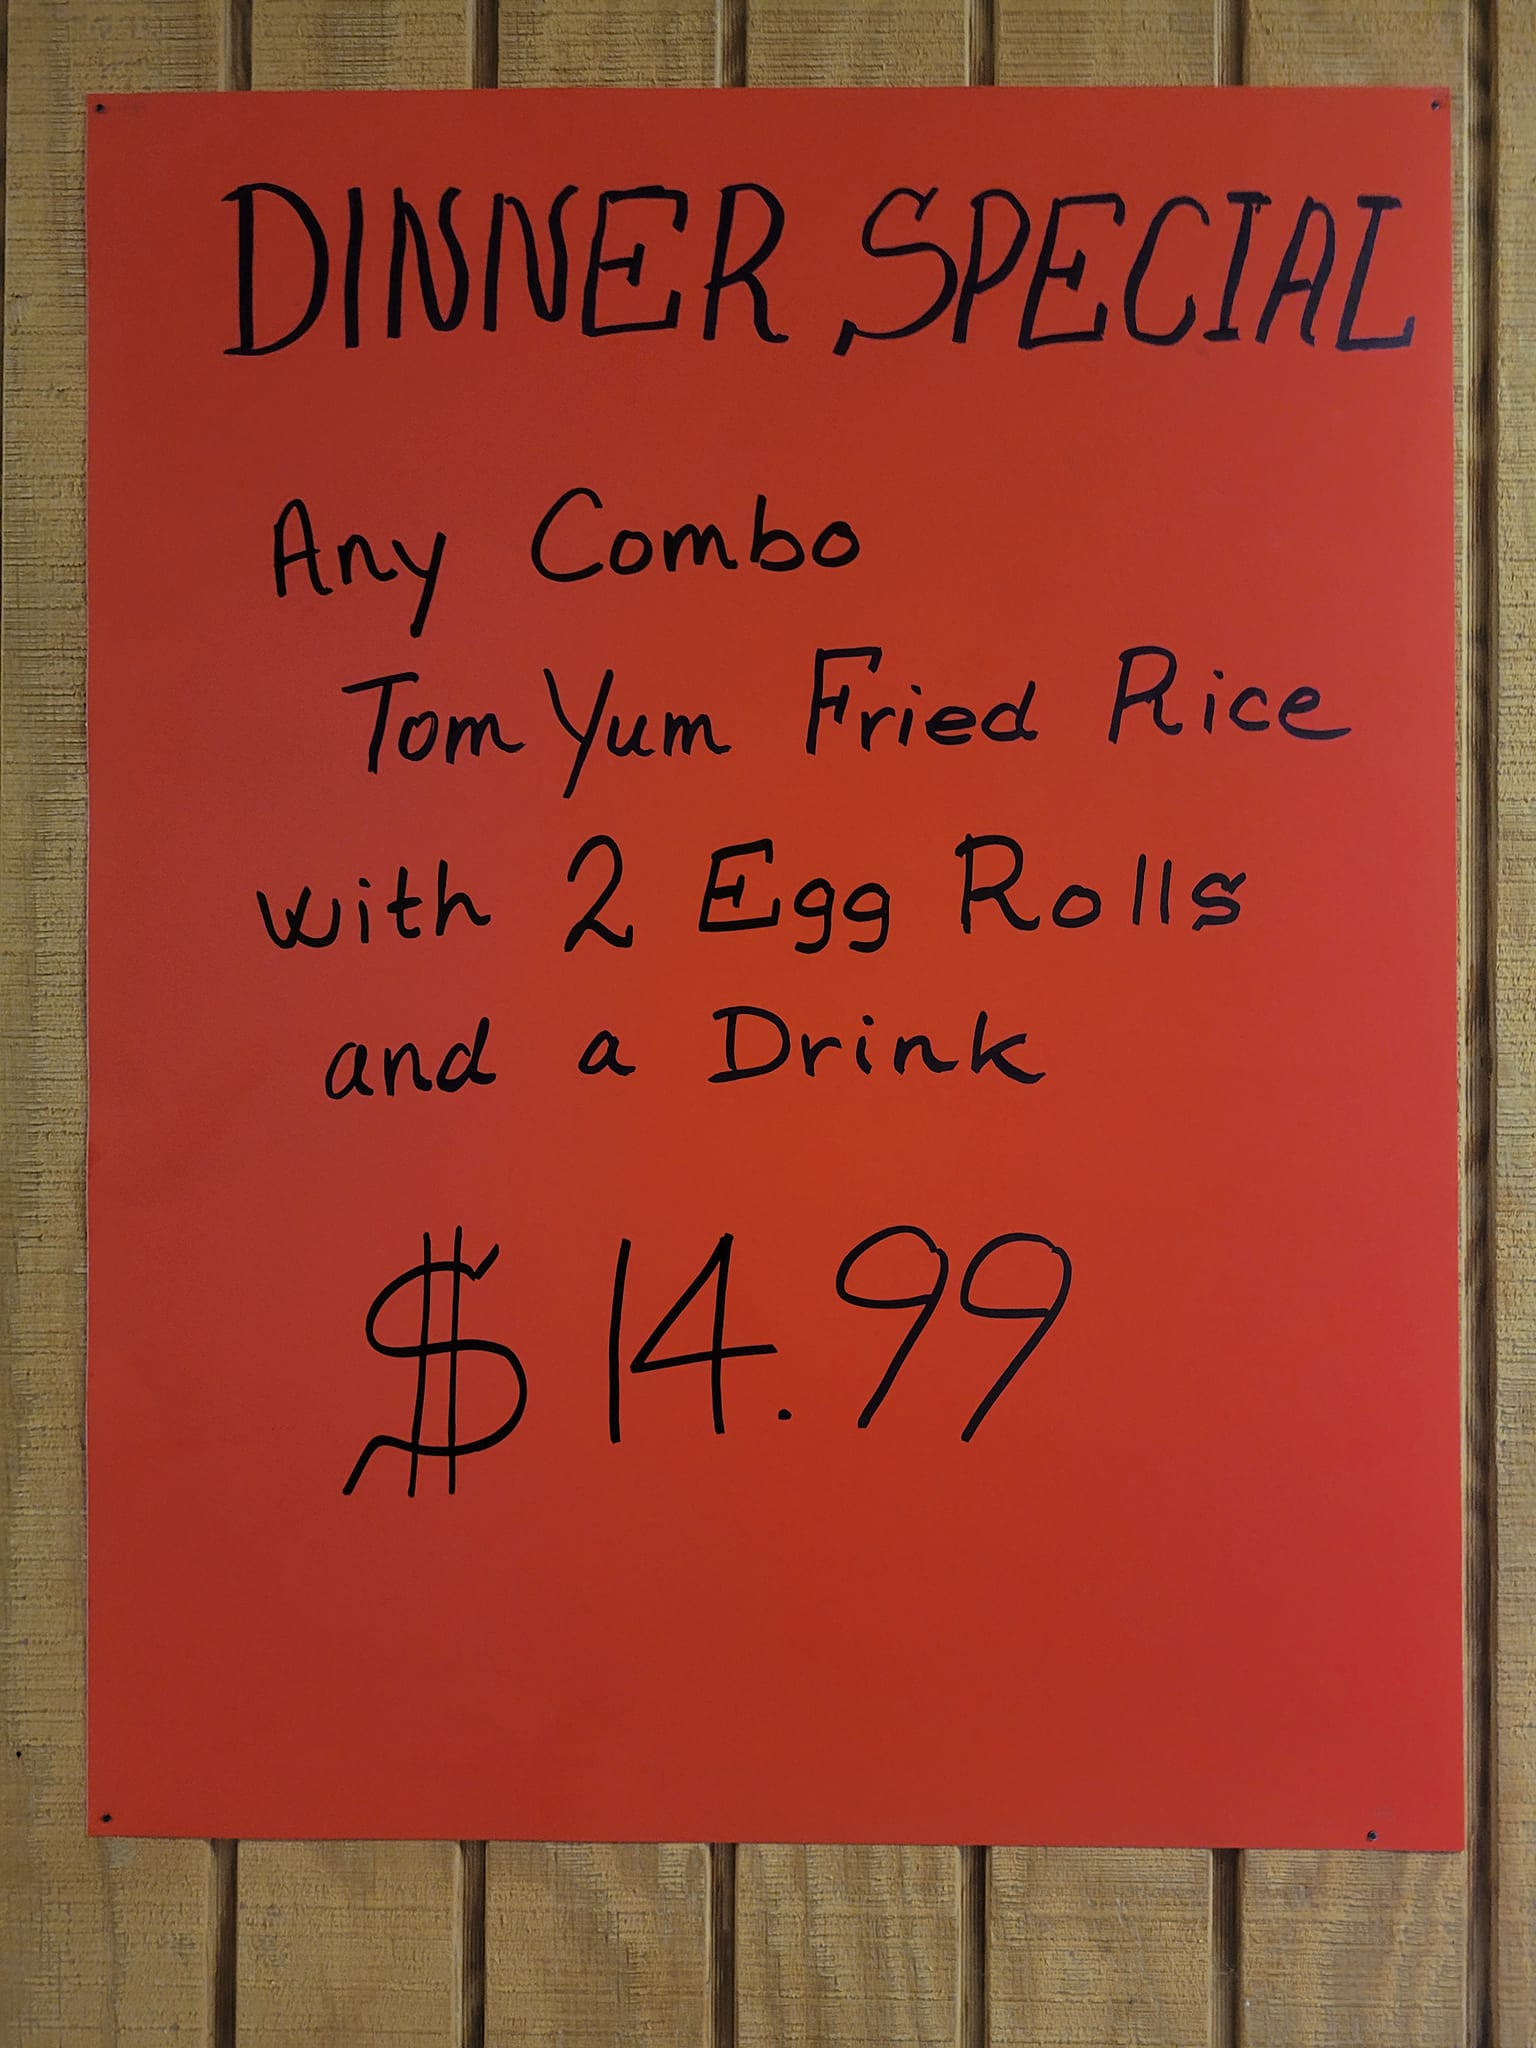 DINNER SPECIAL
Any Combo
Tom Yum Fried Rice
with 2 Egg Rolls
and a Drink
$14.99